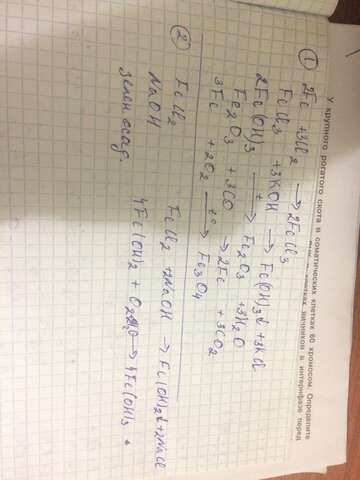 У крупного рогатого скота в соматических клетках 60 хромосом. Определите
клетках яичников в интерфазе перед
① 2Fe + 3Cl₂ → 2FeCl₃
FeCl₃ + 3KOH → Fe(OH)₃↓ + 3KCl
2Fe(OH)₃ →ᵗ Fe₂O₃ + 3H₂O
Fe₂O₃ + 3CO → 2Fe + 3CO₂
3Fe + 2O₂ →ᵗ° Fe₃O₄
② FeCl₂ FeCl₂ + 2NaOH → Fe(OH)₂↓ + 2NaCl
NaOH
зелен осад. 4Fe(OH)₂ + O₂ → 4Fe(OH)₃ ↓